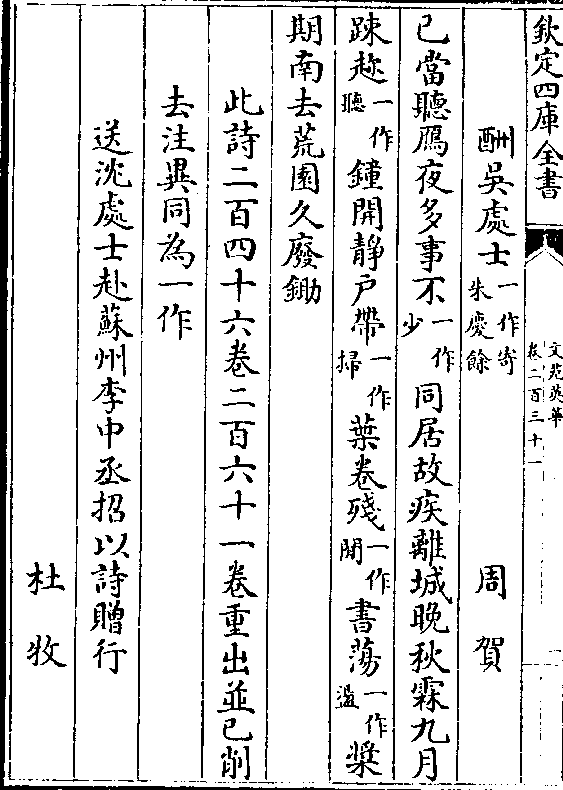 欽定四庫全書
文苑英華
卷二百三十一
酬吳處士一作寄朱慶餘 周賀
已當聽鴈夜多事不一作少同居故疾離城晚秋霖九月
踈趂一作聽鐘開静户帶一作掃葉卷殘一作開書蕩一作盪槳
期南去荒園久廢鋤
此詩二百四十六卷二百六十一卷重出並已削
去注異同為一作
送沈處士赴蘇州李中丞招以詩贈行
杜牧